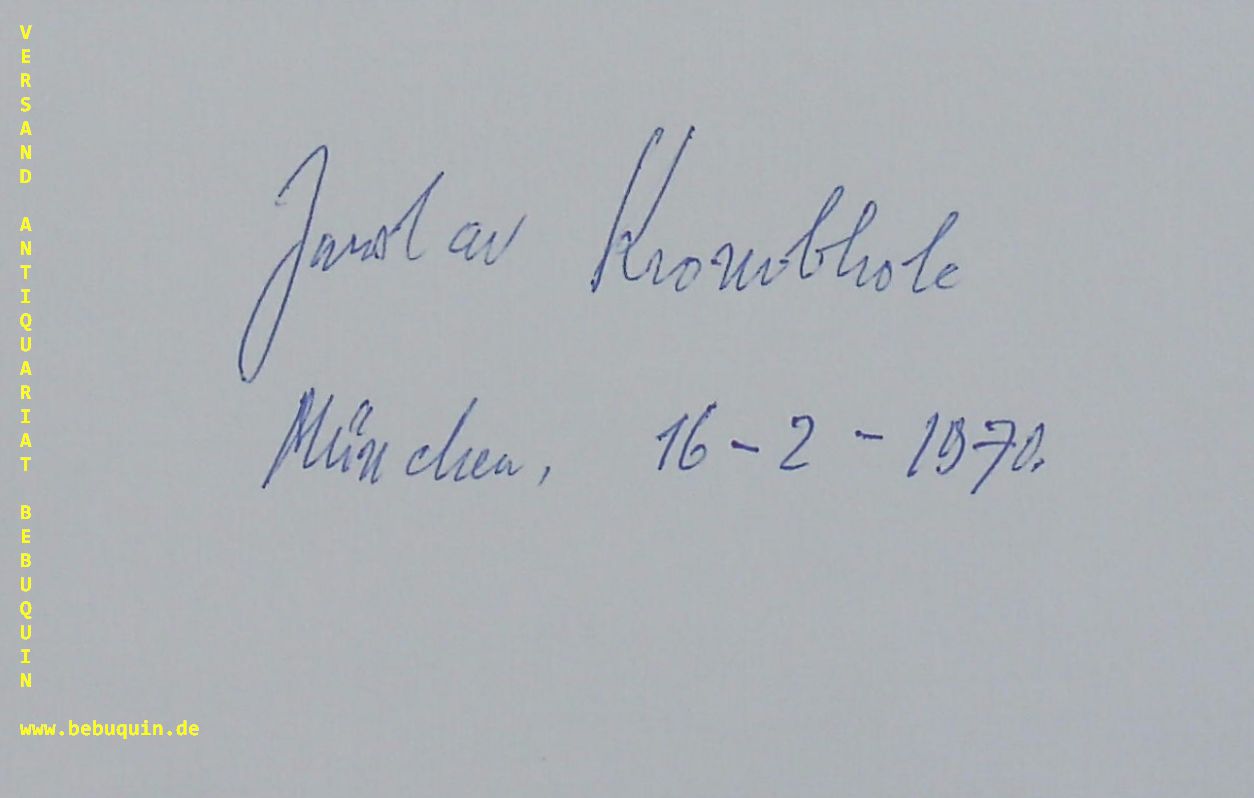 VERSAND ANTIQUARIAT BEBUQUIN
Jaroslav Krombholc
München, 16-2-1970.
www.bebuquin.de